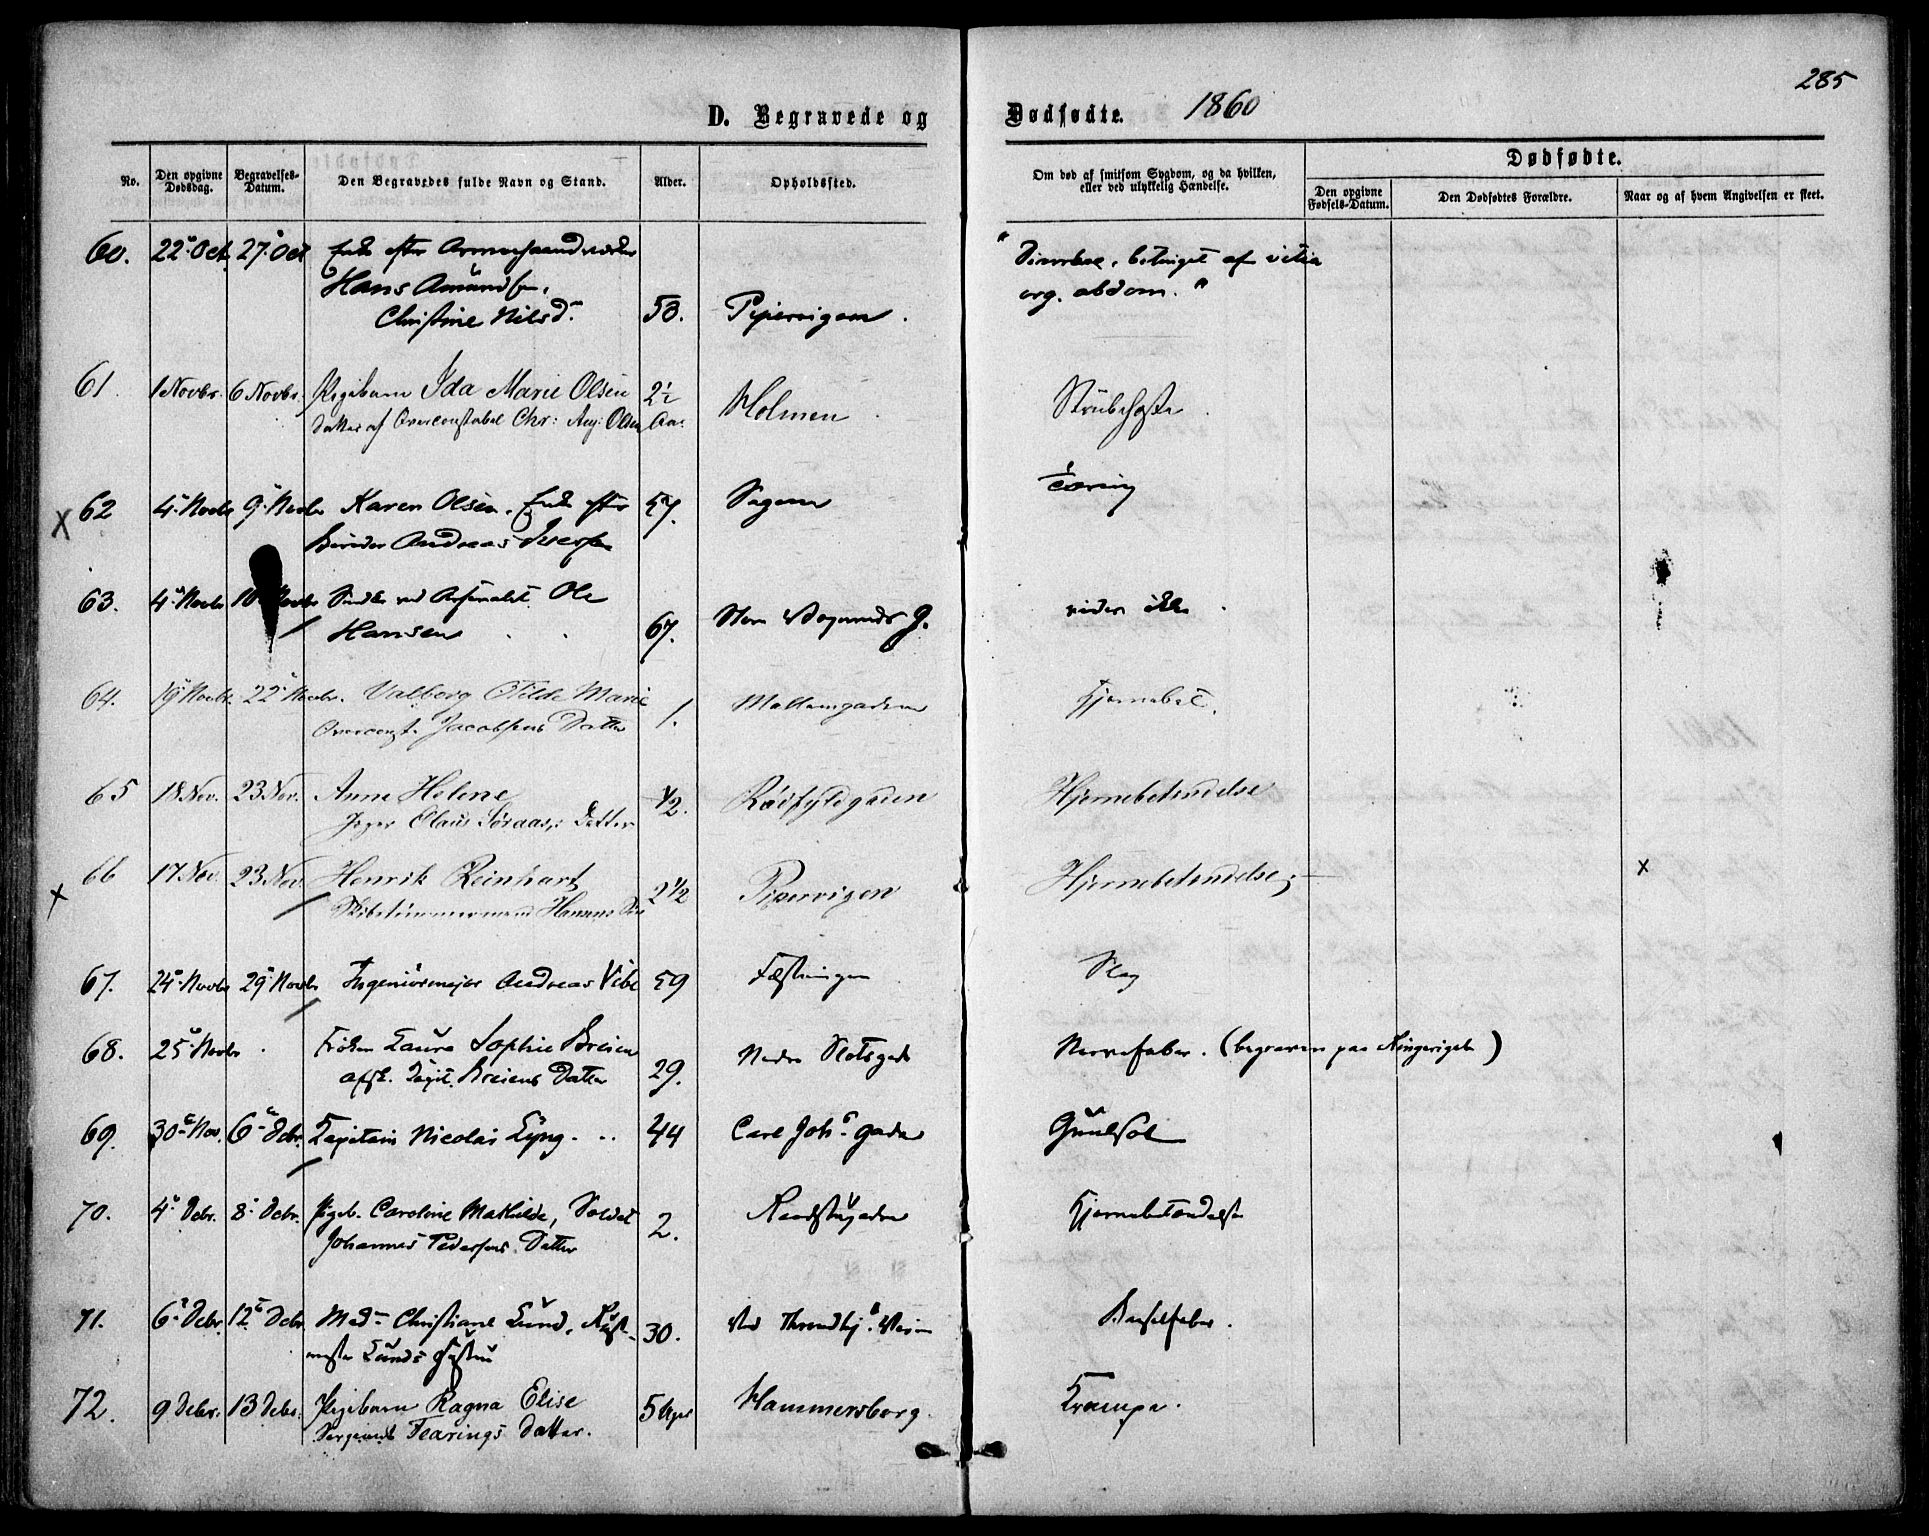 285
D. Begravede og Dødfødte. 1860
No.
Den opgivne Dødsdag.
Begravelses-Datum.
Den Begravedes fulde Navn og Stand.
Alder.
Opholdssted.
Om død af smitsom Sygdom, og da hvilken,
eller ved ulykkelig Hændelse.
Dødfødte.
Den opgivne Fødsels-Datum.
Den Dødfødtes Forældre.
Naar og af hvem Angivelsen er skeet.
60. 22 Oct. 27 Oct Enke efter
Hans Amundsen,
Christine Nilsd. 50. Pipervigen.
betinget af vitia
org. abdom."
61. 1 Novbr. 6 Novbr. Pigebarn Ida Marie Olsen 2½ Aar Holmen Strubehoste
Datter af Overconstabel Chr: Aug: Olsen
X 62 4 Novbr 9 Novbr Karen Olsen, Enke efter 57. Sagene Tæring
Andreas Iversen
63. 4 Novbr 10 Novbr ved Arsenalet Ole
Hansen 67. Store Vognmands G. vides ikke
64. 19 Novbr. 22 Novbr. Valborg Otilde Marie
Overconst. Jacobsens Datter 1. Møllergaden Hjernebet.
65 18 Nov. 23 Nov. Anne Helene ½. Rødfyldgaden Hjernebetændelse
Jæger Olaus Datter
x 66 17 Nov. 23 Nov Henrik Reinhart 2½ Pipervigen Hjernebetændelse; x
Skibstømmermand Hansens Søn
67. 24 Novbr 29 Novbr Ingeniørmajor Andreas Vibe 59 Fæstningen Slag
68. 25 Novbr Frøken Laura Sophie Breien
afsk. Capit. Breiens Datter 29. Nedre Slotsgade Nervefeber. (begraven paa Ringerige)
69. 30 Nov. 6 Debr. Capitain Nicolai Lyng 44 Carl Joh. gade Guulsot
70. 4 Debr. 8 Debr. Pigeb. Caroline Mathilde, Soldat
Johannes Pedersens Datter 2. Raadstugaden Hjernebetændelse
71. 6 Debr. 12 Debr. Mad. Christiane Lund, Rust-
mester Lunds Hustru 30. Ved Throndhj. Veien Barselfeber.
72. 9 Debr. 13 Debr. Pigebarn Ragna Elise 5 Uger Hammersborg. Krampe.
Sergeant Tearings Datter.